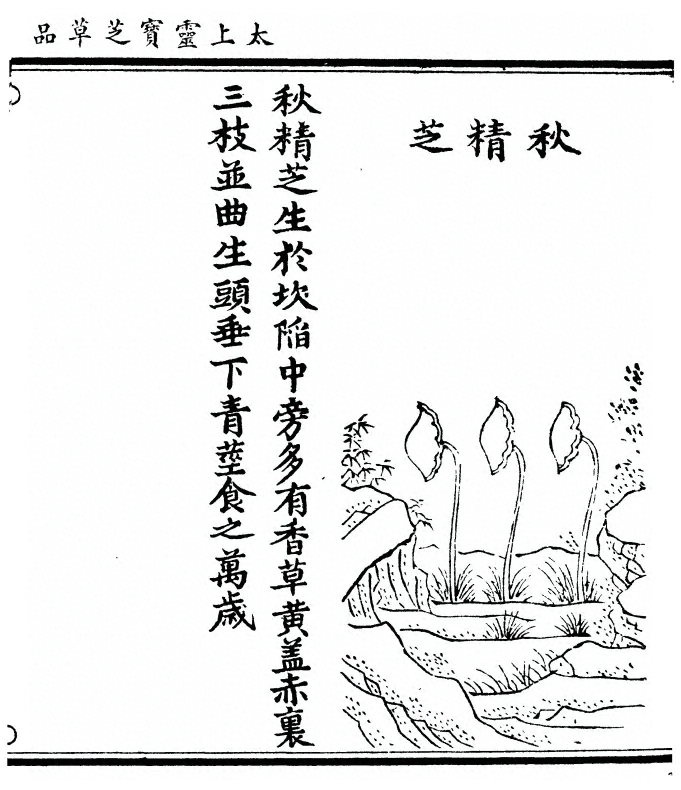 太上靈寶芝草品
秋精芝
秋精芝生於坎陷中旁多有香草黄盖赤裏
三枝並曲生頭垂下青莖食之萬歳